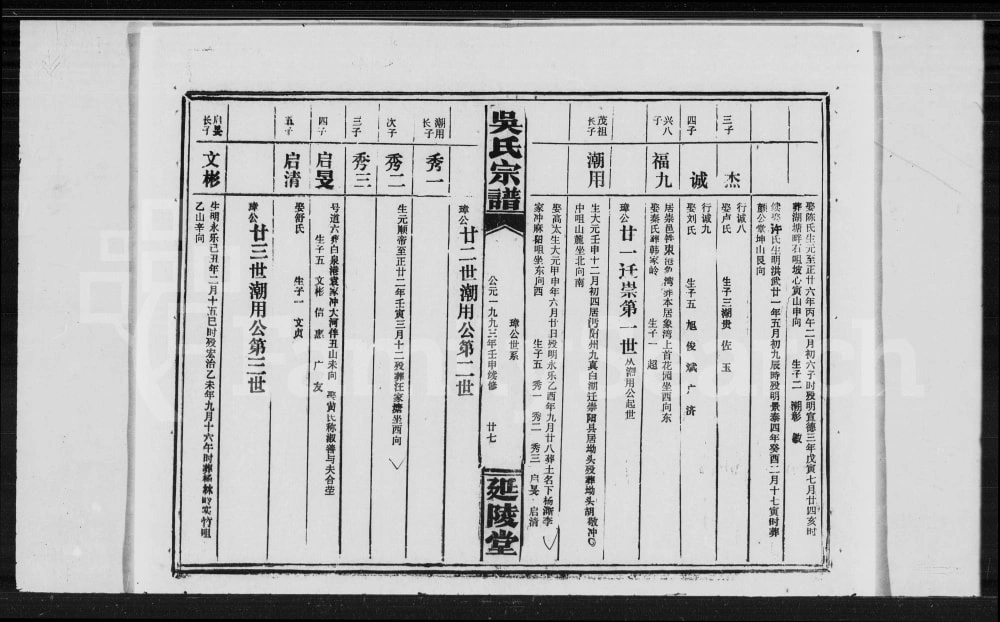 娶陈氏生元至正廿六年丙午二月初六子时殁明宣德三年戊寅七月廿四亥时
葬湖塘畔石咀坡心寅山申向 生子二 潮彰 敏
续娶许氏生明洪武廿一年五月初九辰时殁明景泰四年癸酉二月十七寅时葬
颜公堂坤山艮向
三子
杰
行诚八
娶卢氏 生子三 湖贵 佐 玉
四子
诚
行诚九
娶刘氏 生子五 旭 俊 斌 广 济
兴八子
福九
居崇邑
湾 本居象湾上首花园坐西向东
娶秦氏 韩家岭 生子一 超
璋公 廿一迁崇第一世 从潮用公起世
茂祖长子
潮用
生大元壬申十二月初四居沔阳州九真白湖迁崇阳县居坳头殁葬坳头胡敬冲
中咀山麓坐北向南
娶高太生大元甲申年六月廿日殁明永乐乙酉年九月廿八葬土名下杨澌李
家冲麻阳咀坐东向西 生子五 秀一 秀二 秀三 启旻 启清
吳氏宗譜
璋公世系
公元一九九三年壬申续修
廿七
延陵堂
璋公 廿二世潮用公第二世
潮用长子
秀一
次子
秀二
生元顺帝至正廿二年壬寅三月十二殁葬汪家塘坐西向
三子
秀三
四子
启旻
号道六葬白泉港袁家冲大河伴丑山未向 娶黄氏称淑善与夫合茔
生子五 文彬 信 惠 广 友
五子
启清
娶舒氏 生子一 文贞
璋公 廿三世潮用公第三世
启旻长子
文彬
生明永乐己丑年二月十五巳时殁宏治乙未年九月十六午时葬杨林 竹咀
乙山辛向